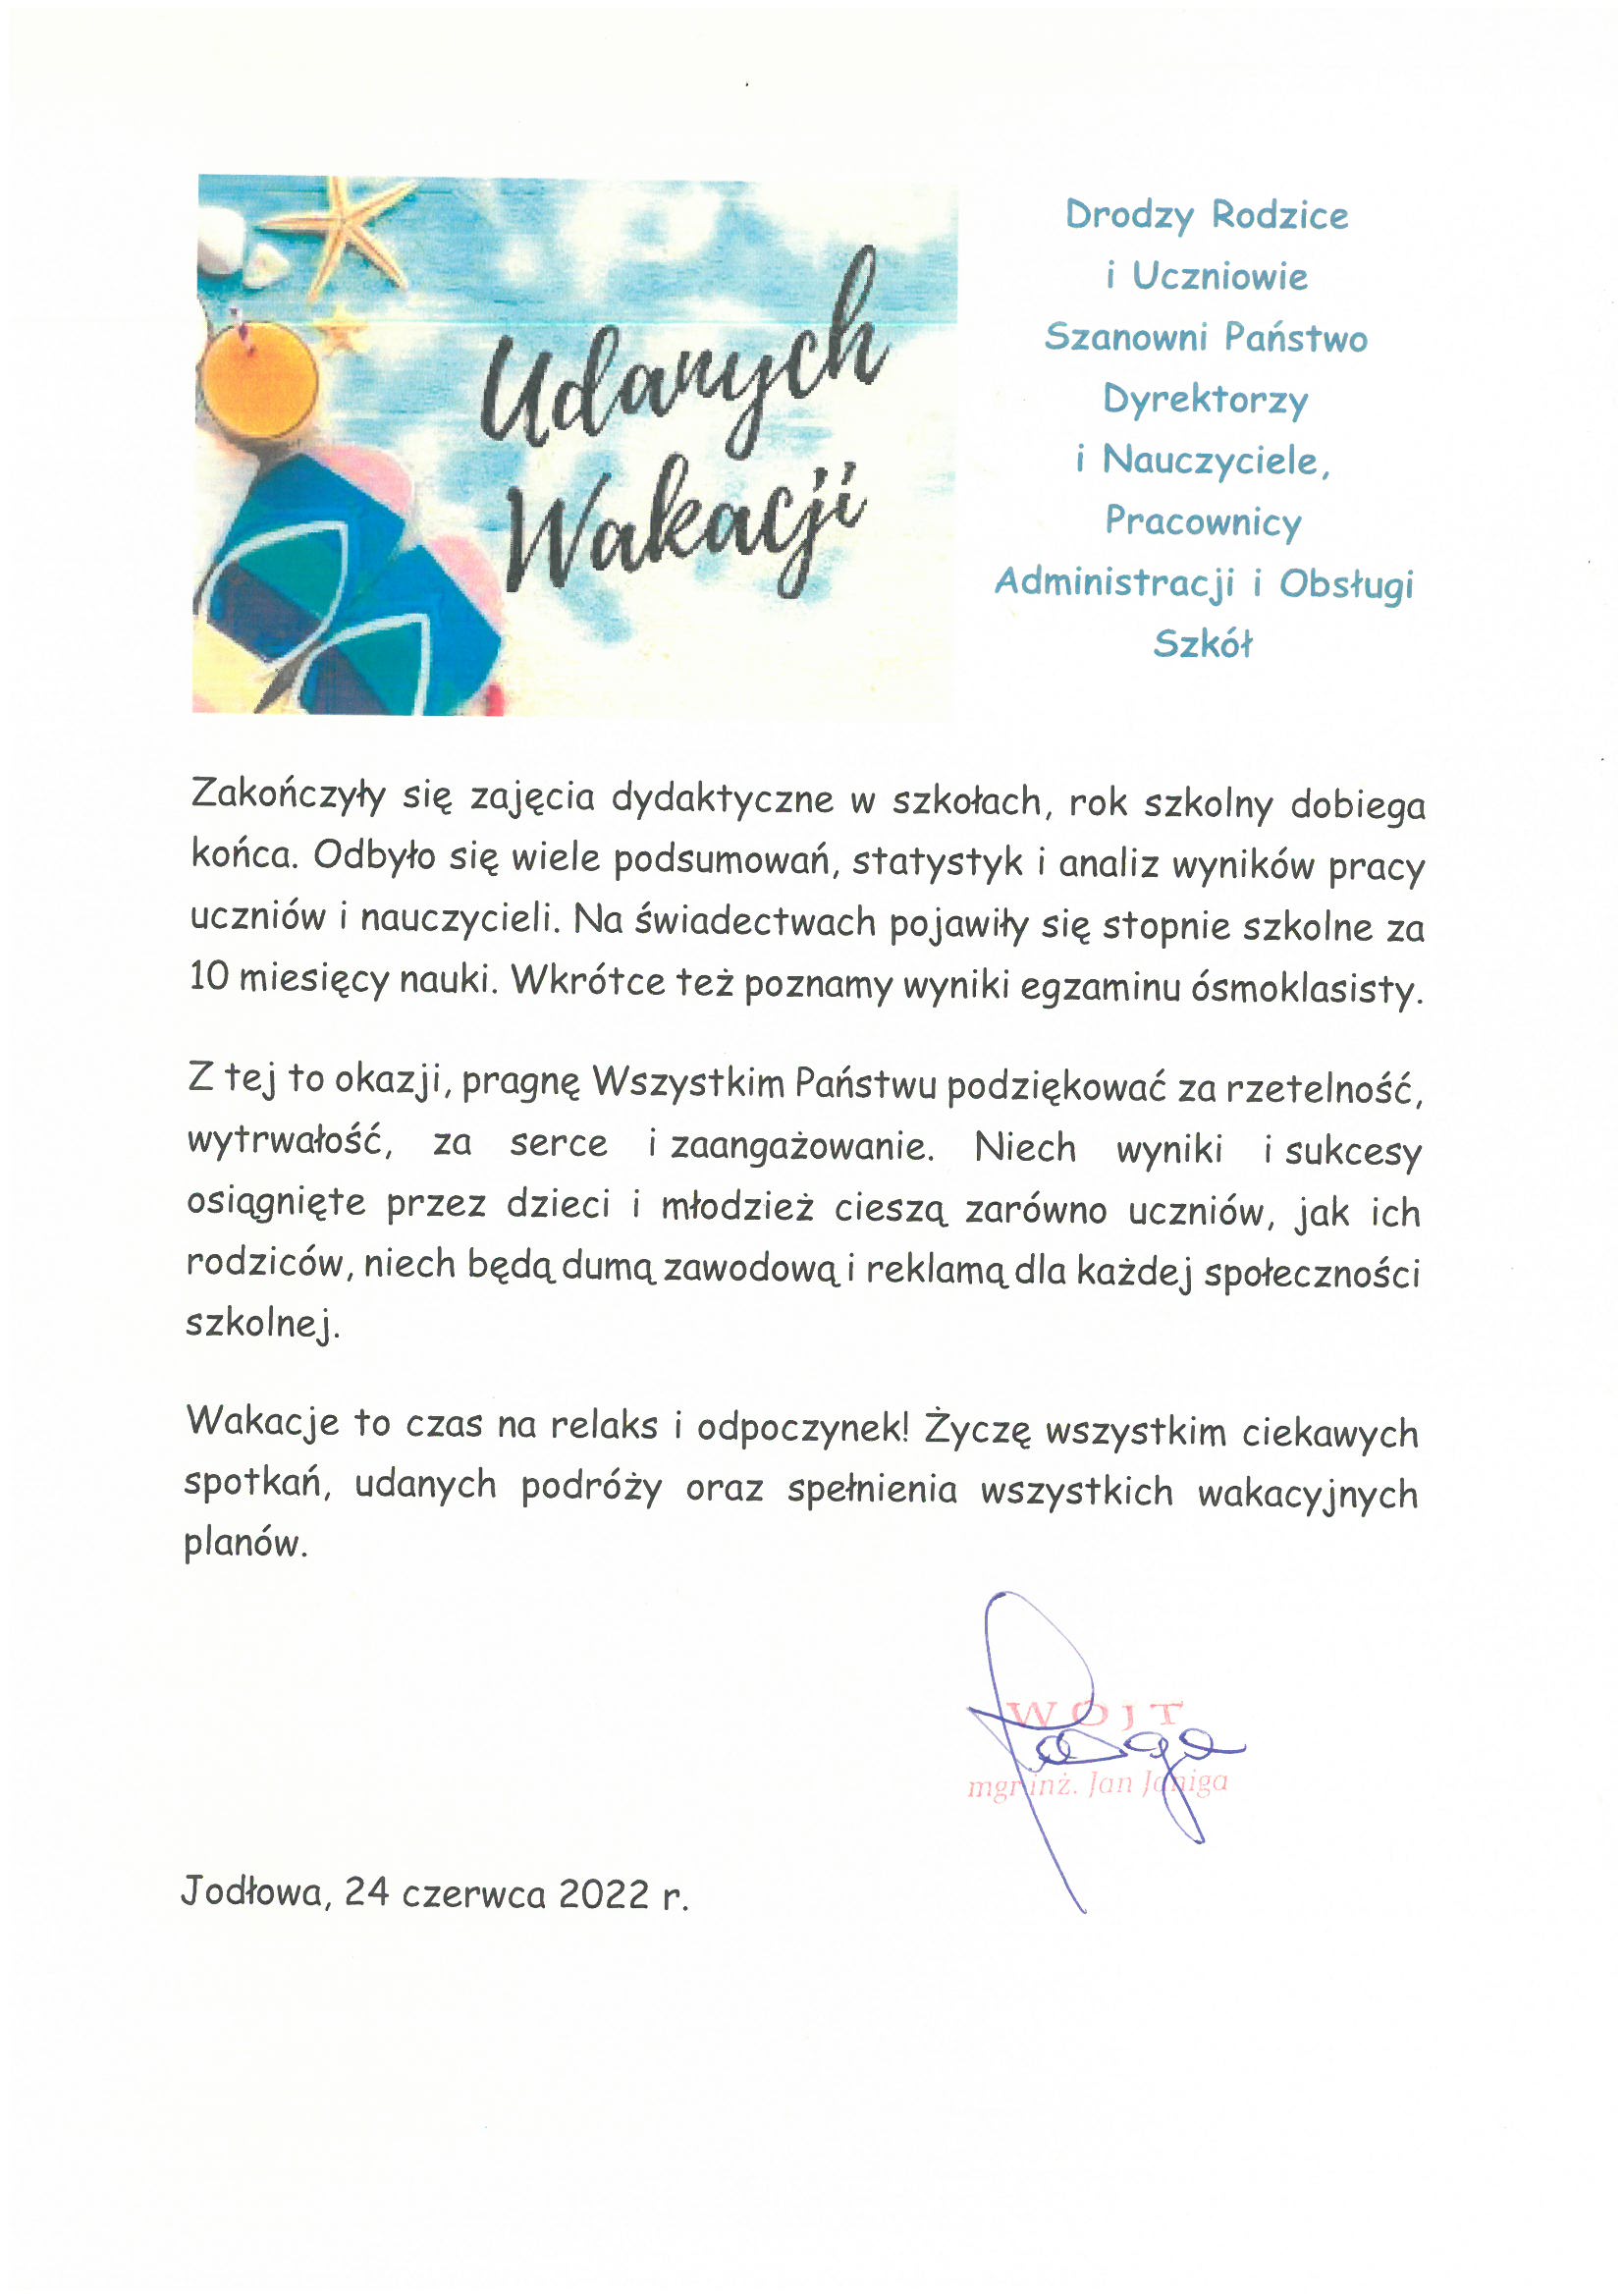 Udanych
Wakacji
Drodzy Rodzice
i Uczniowie
Szanowni Państwo
Dyrektorzy
i Nauczyciele,
Pracownicy
Administracji i Obsługi
Szkół
Zakończyły się zajęcia dydaktyczne w szkołach, rok szkolny dobiega
końca. Odbyło się wiele podsumowań, statystyk i analiz wyników pracy
uczniów i nauczycieli. Na świadectwach pojawiły się stopnie szkolne za
10 miesięcy nauki. Wkrótce też poznamy wyniki egzaminu ósmoklasisty.
Z tej to okazji, pragnę Wszystkim Państwu podziękować za rzetelność,
wytrwałość, za serce i zaangażowanie. Niech wyniki i sukcesy
osiągnięte przez dzieci i młodzież cieszą zarówno uczniów, jak ich
rodziców, niech będą dumą zawodową i reklamą dla każdej społeczności
szkolnej.
Wakacje to czas na relaks i odpoczynek! Życzę wszystkim ciekawych
spotkań, udanych podróży oraz spełnienia wszystkich wakacyjnych
planów.
WÓJT
mgr inż. Jan Janiga
Jodłowa, 24 czerwca 2022 r.